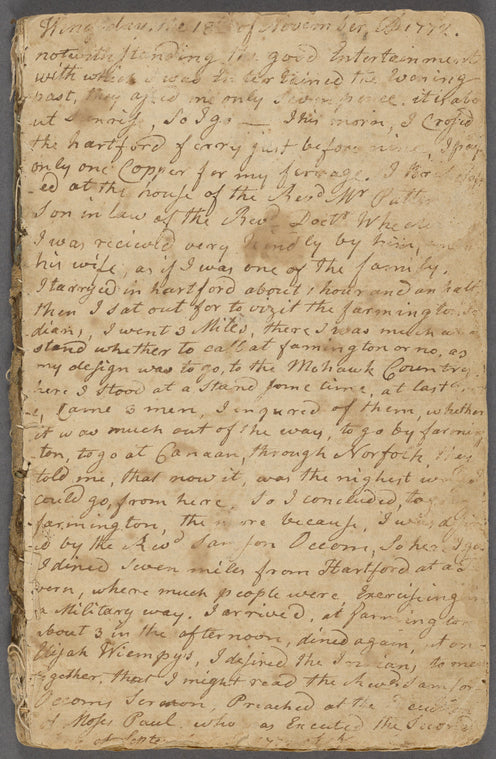 Wensday, the 18th of November, AD 1772.
notwithstanding the good Entertainment
with which I was Entertained the Evening
past, they asked me only Seven pence. it is abo
ut Sunrise, So I go — This morn, I Crosed
the hartford ferry just before nine, I pay
only one Copper for my ferriage. I
ed at the house of the Revd Mr Patte
Son in law of the Revd Doctr Wheelo
I was recieved very kindly by him, an
his wife, as if I was one of the family.
I tarryed in hartford about 1 hour and an half
then I sat out for to vizit the farmington In
dians, I went 3 Miles, there I was much at a
stand whether to call at famington or no, as
my design was to go, to the Mohawk Country,
here I stood at a stand some time, at last
Came 3 men, I enqured of them, whether
it was much out of the way, to go by farming
ton, to go at Canaan, through Norfolk, they
told me, that now it, was the nighest way I
could go, from here. So I concluded, to
farmington, the more because, I was desir
ed by the Revd Samson Occom, So here I go
I dined Seven miles from Hartford at a ta
vern, where much people were Exercising in
a Military way. I arrived, at farmington
about 3 in the afternoon, dined again, at on
Elijah Wiempys, I desired the Indians, to meet
together, that I might read the Revd Samson
Occoms Sermon, Preached at the Execution
of Moses Paul who was Excuted the Second
of Septe